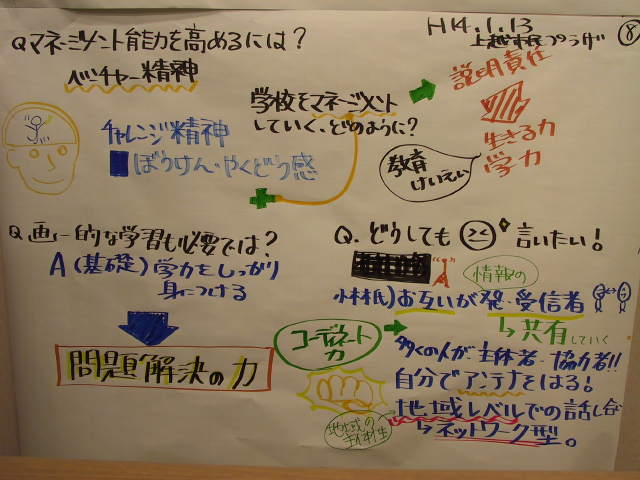 Qマネージメント能力を高めるには?
H14.1.13
上越市民プラザ
⑧
ベンチャー精神
学校をマネージメント
していく、どのように?
説明責任
生きる力
学力
教育
けいえい
チャレンジ精神
ぼうけん・やくどう感
Q.画一的な学習も必要では?
A(基礎)学力をしっかり
身につける
問題解決の力
Q.どうしても 言いたい!
情報の
小林氏)お互いが発・受信者
↳共有していく
コーディネート
力
多くの人が主体者・協力者!!
自分でアンテナをはる!
地域の
主体性
地域レベルでの話し合い
↳ネットワーク型。